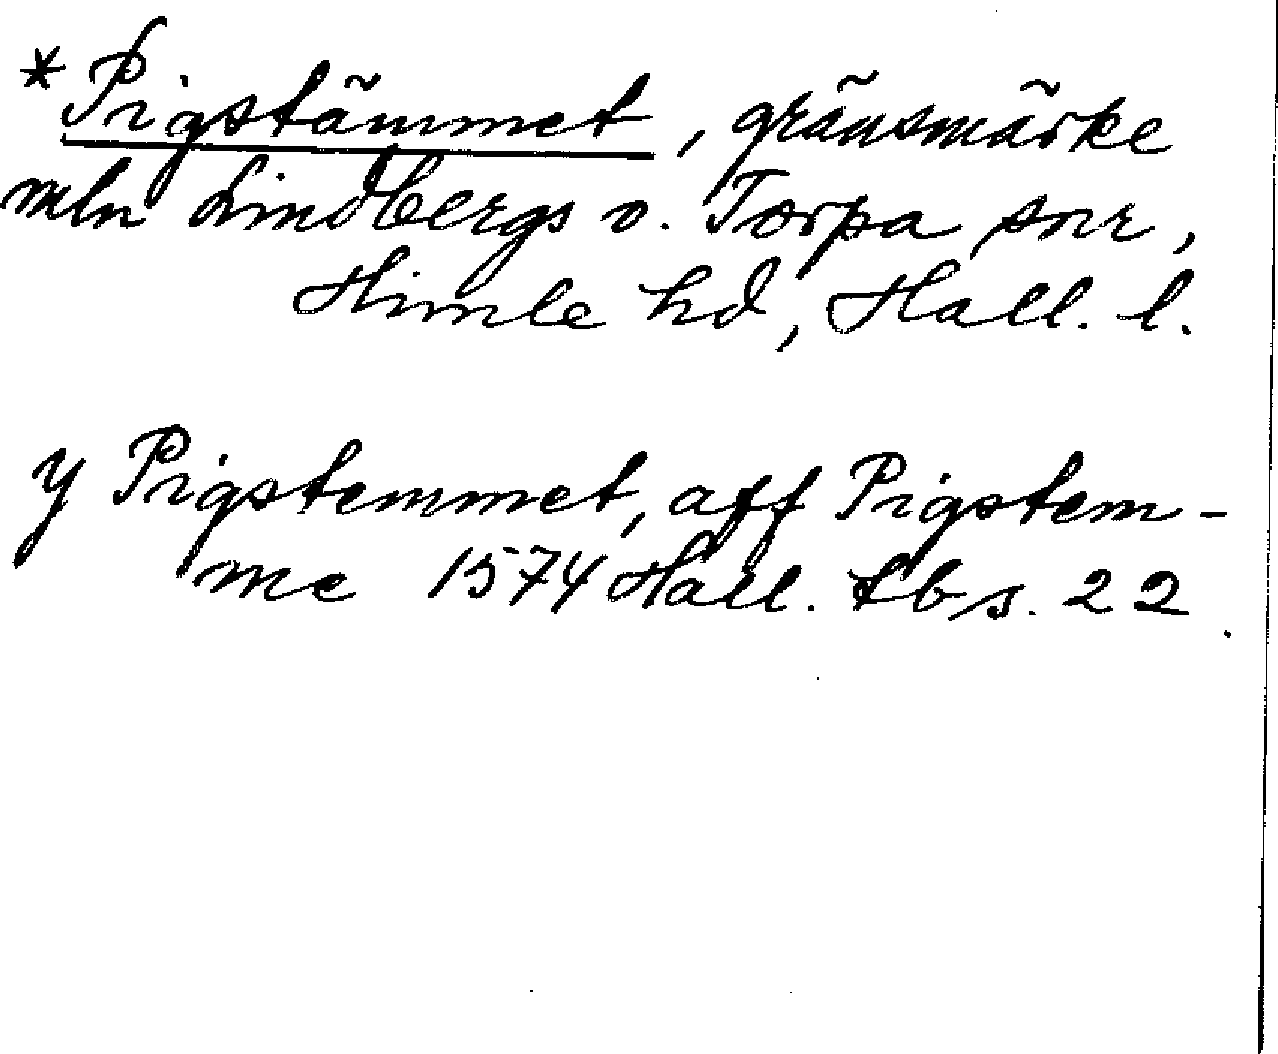 *Pigstämmet, gränsmärke
mln Lindbergs o. Torpa snr,
Himle hd, Hall. l.
y Pigstemmet, aff Pigstem-
me 1574 Hall. tbs. 22.